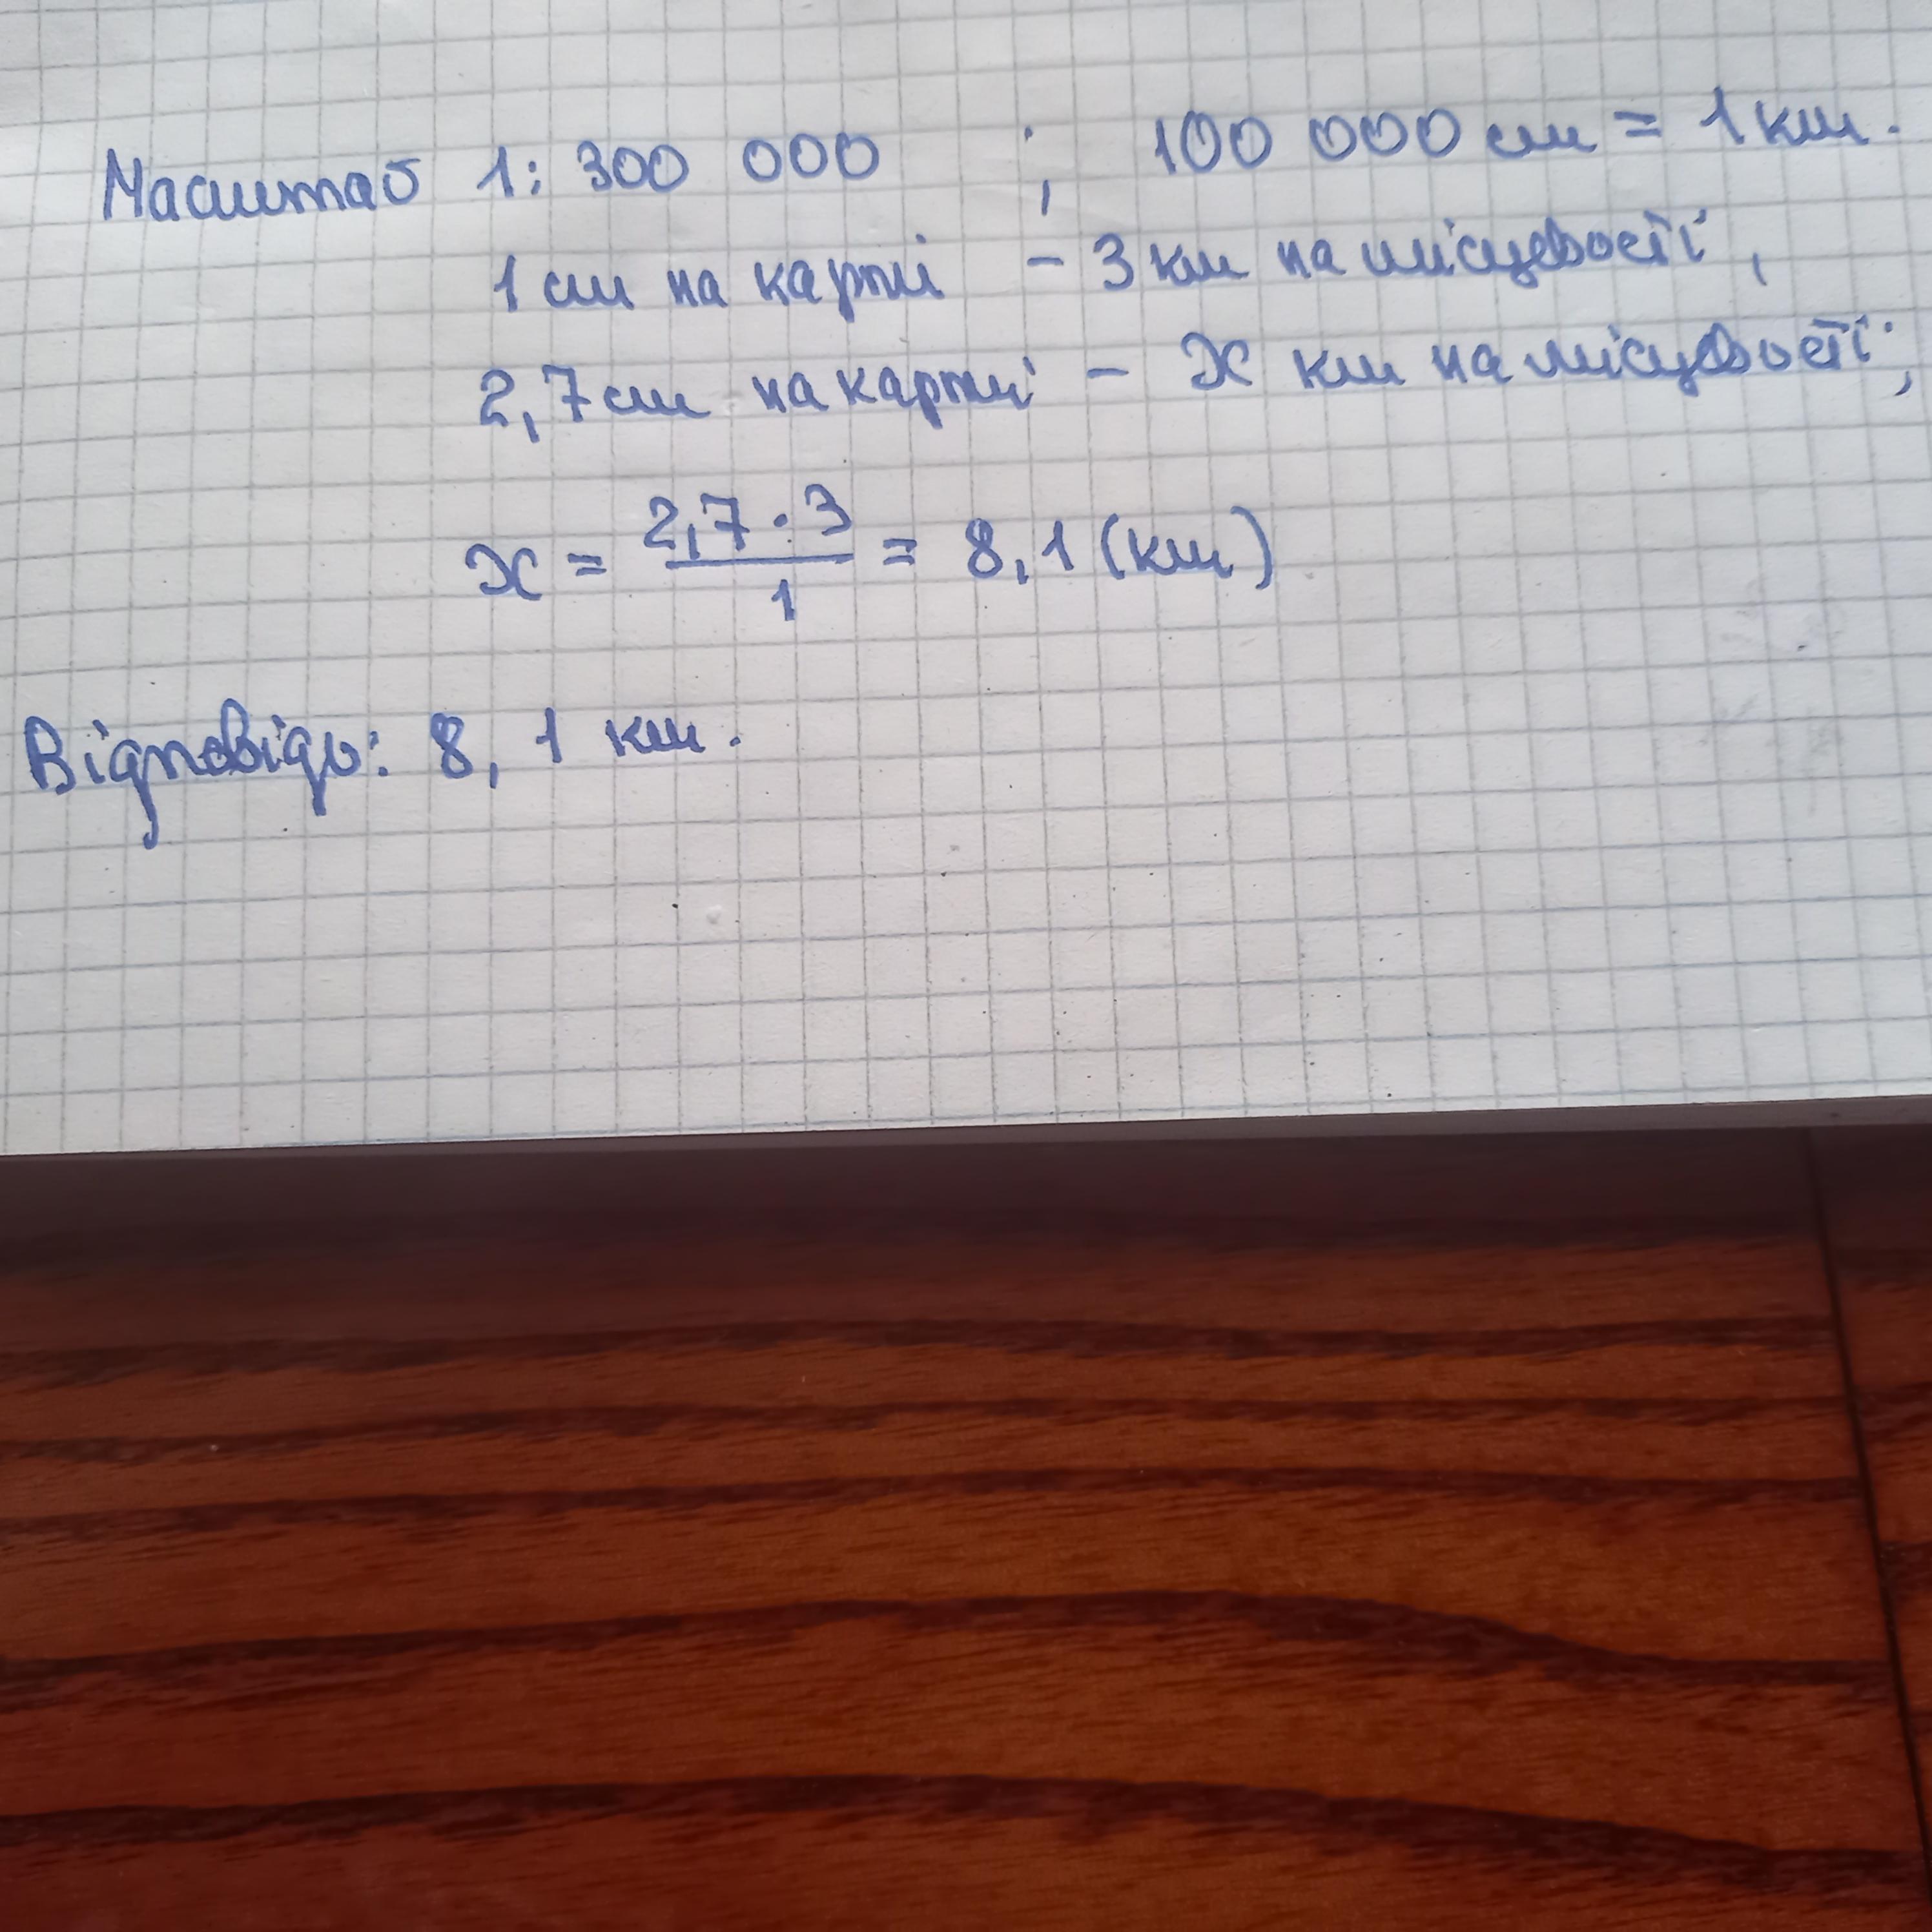 Масштаб 1: 300 000 ; 100 000 см = 1 км.
1 см на карті - 3 км на місцевості,
2,7 см на карті - x км на місцевості;
x = 2,7 · 3 / 1 = 8,1 (км)
Відповідь: 8,1 км.